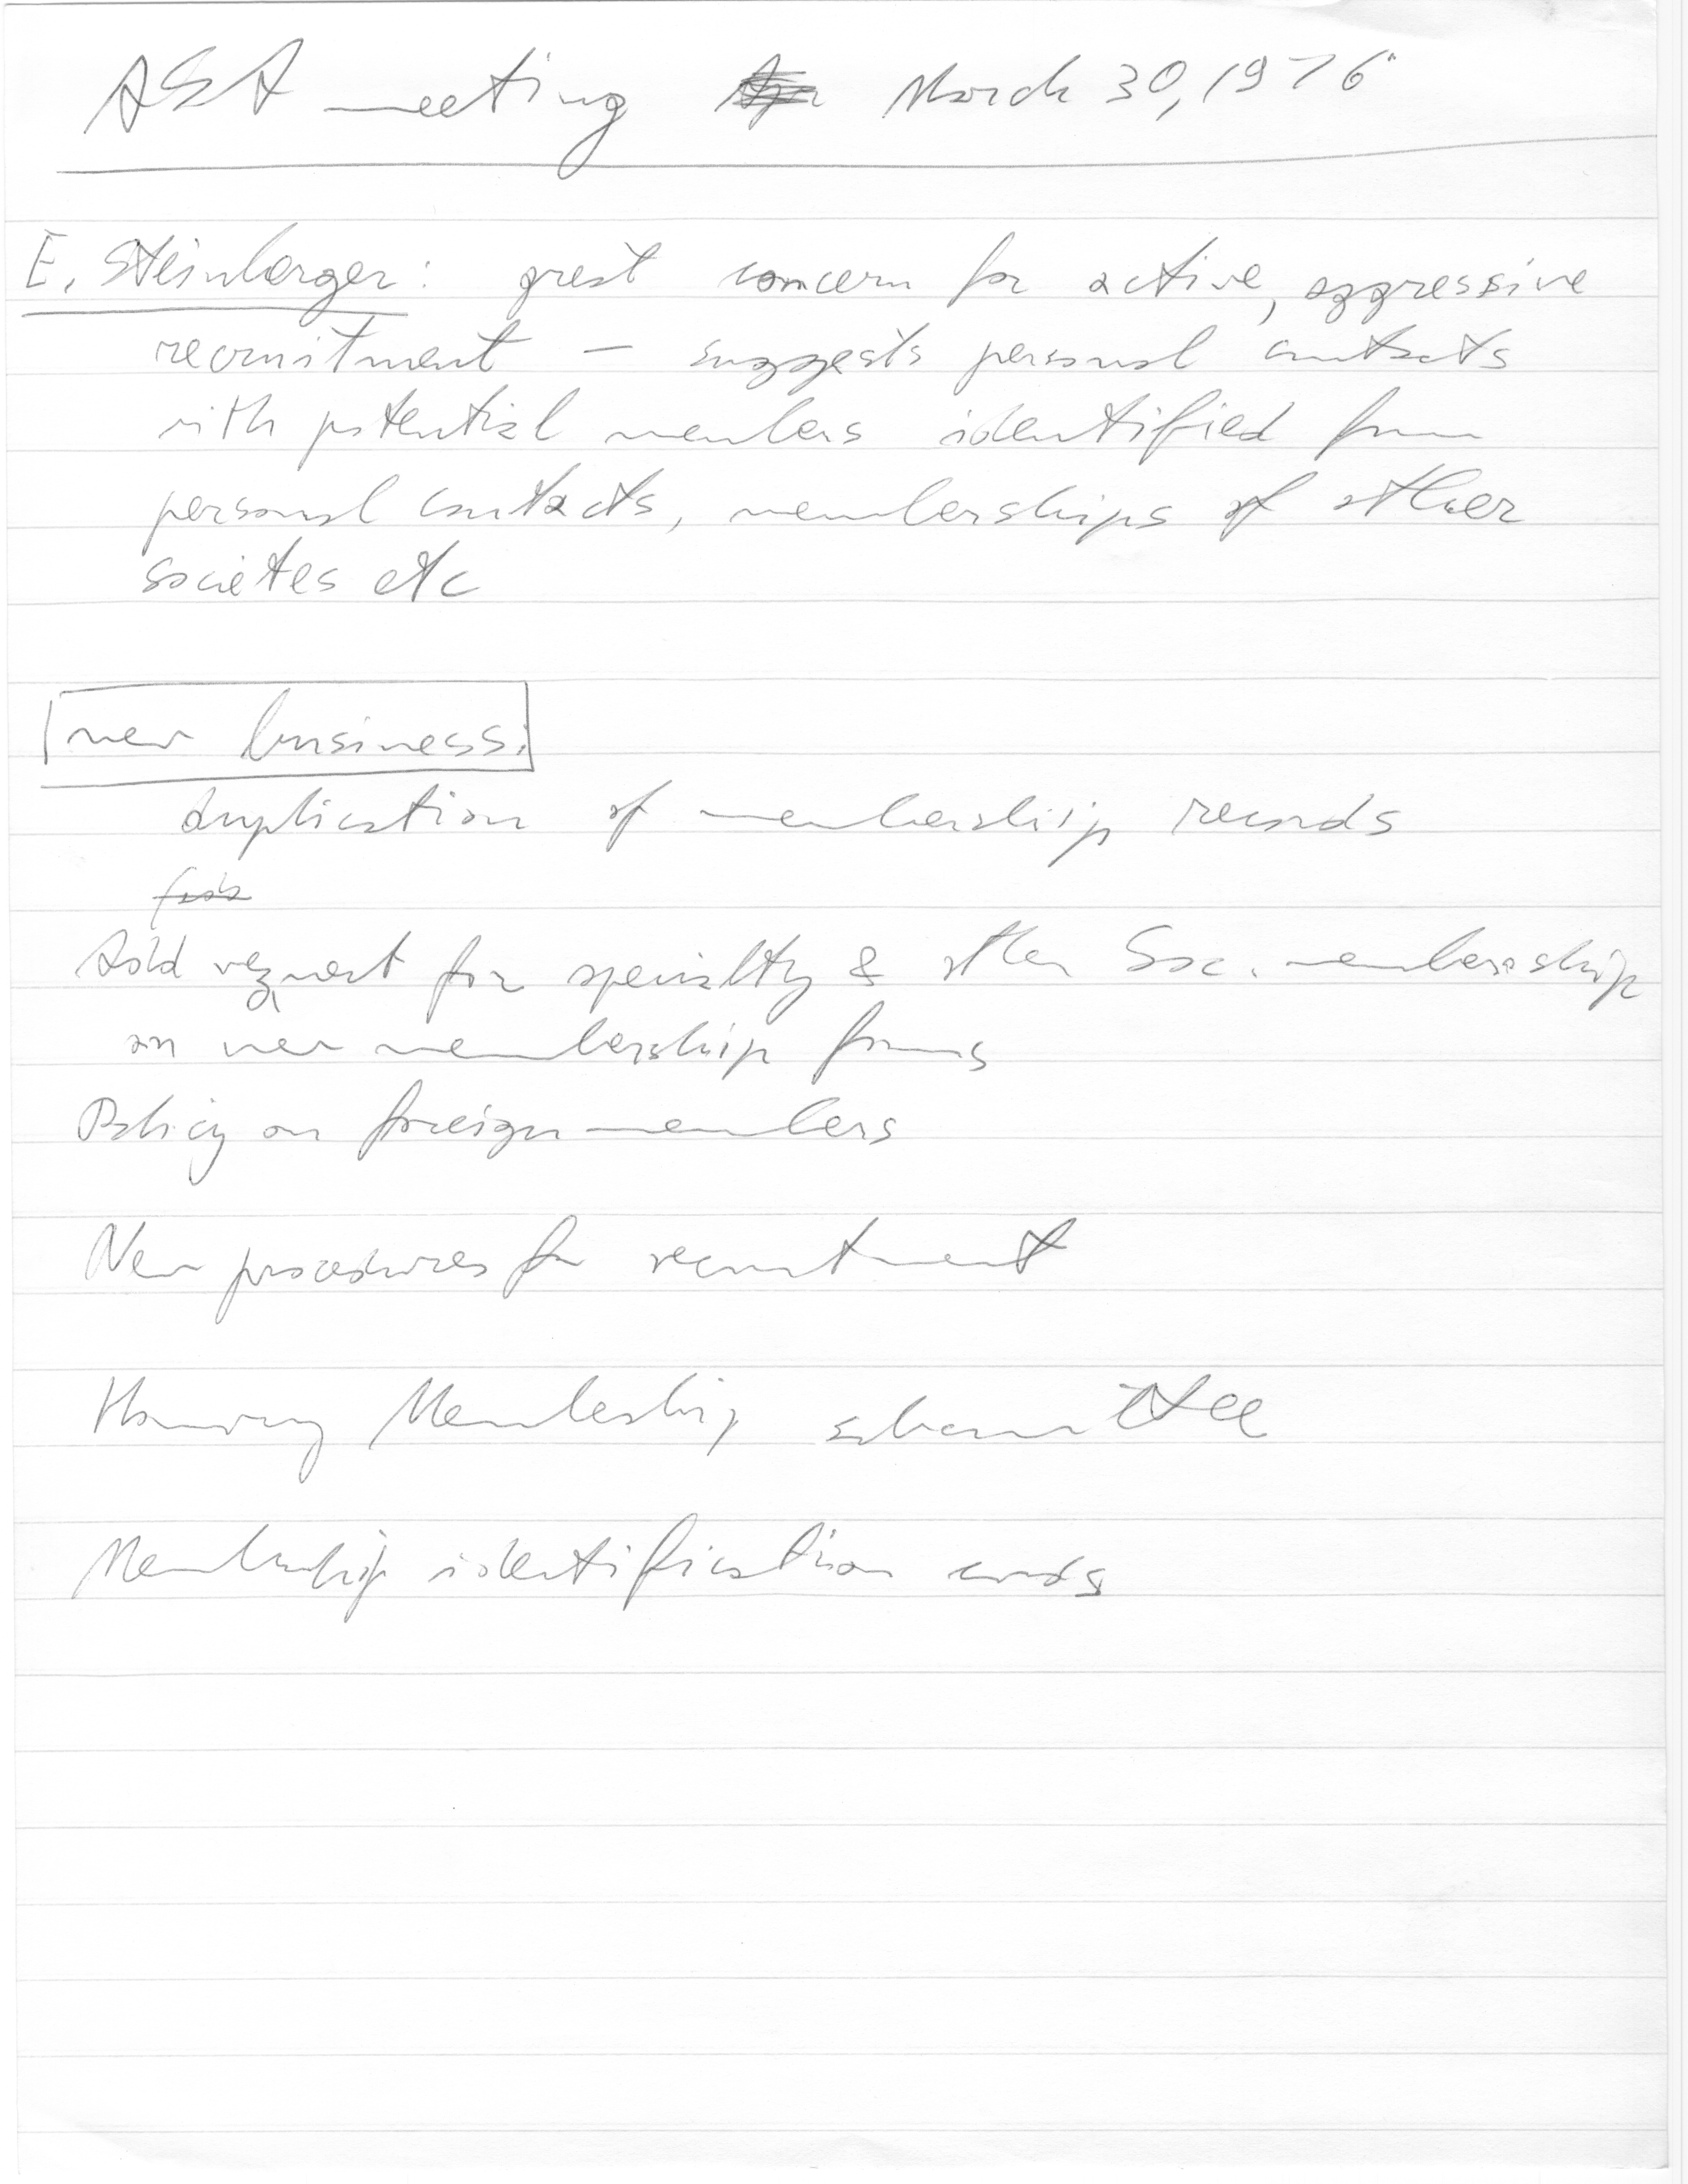 ASA meeting March 30, 1976
E. Steinberger: great concern for active, aggressive
recruitment — suggests personal contacts
with potential members identified from
personal contacts, memberships of other
societes etc
new business:
duplication of membership records
Add request for specialty & other Soc. membership
on new membership forms
Policy on foreign members
New procedures for recruitment
Honorary Membership subcommittee
Membership identification cards